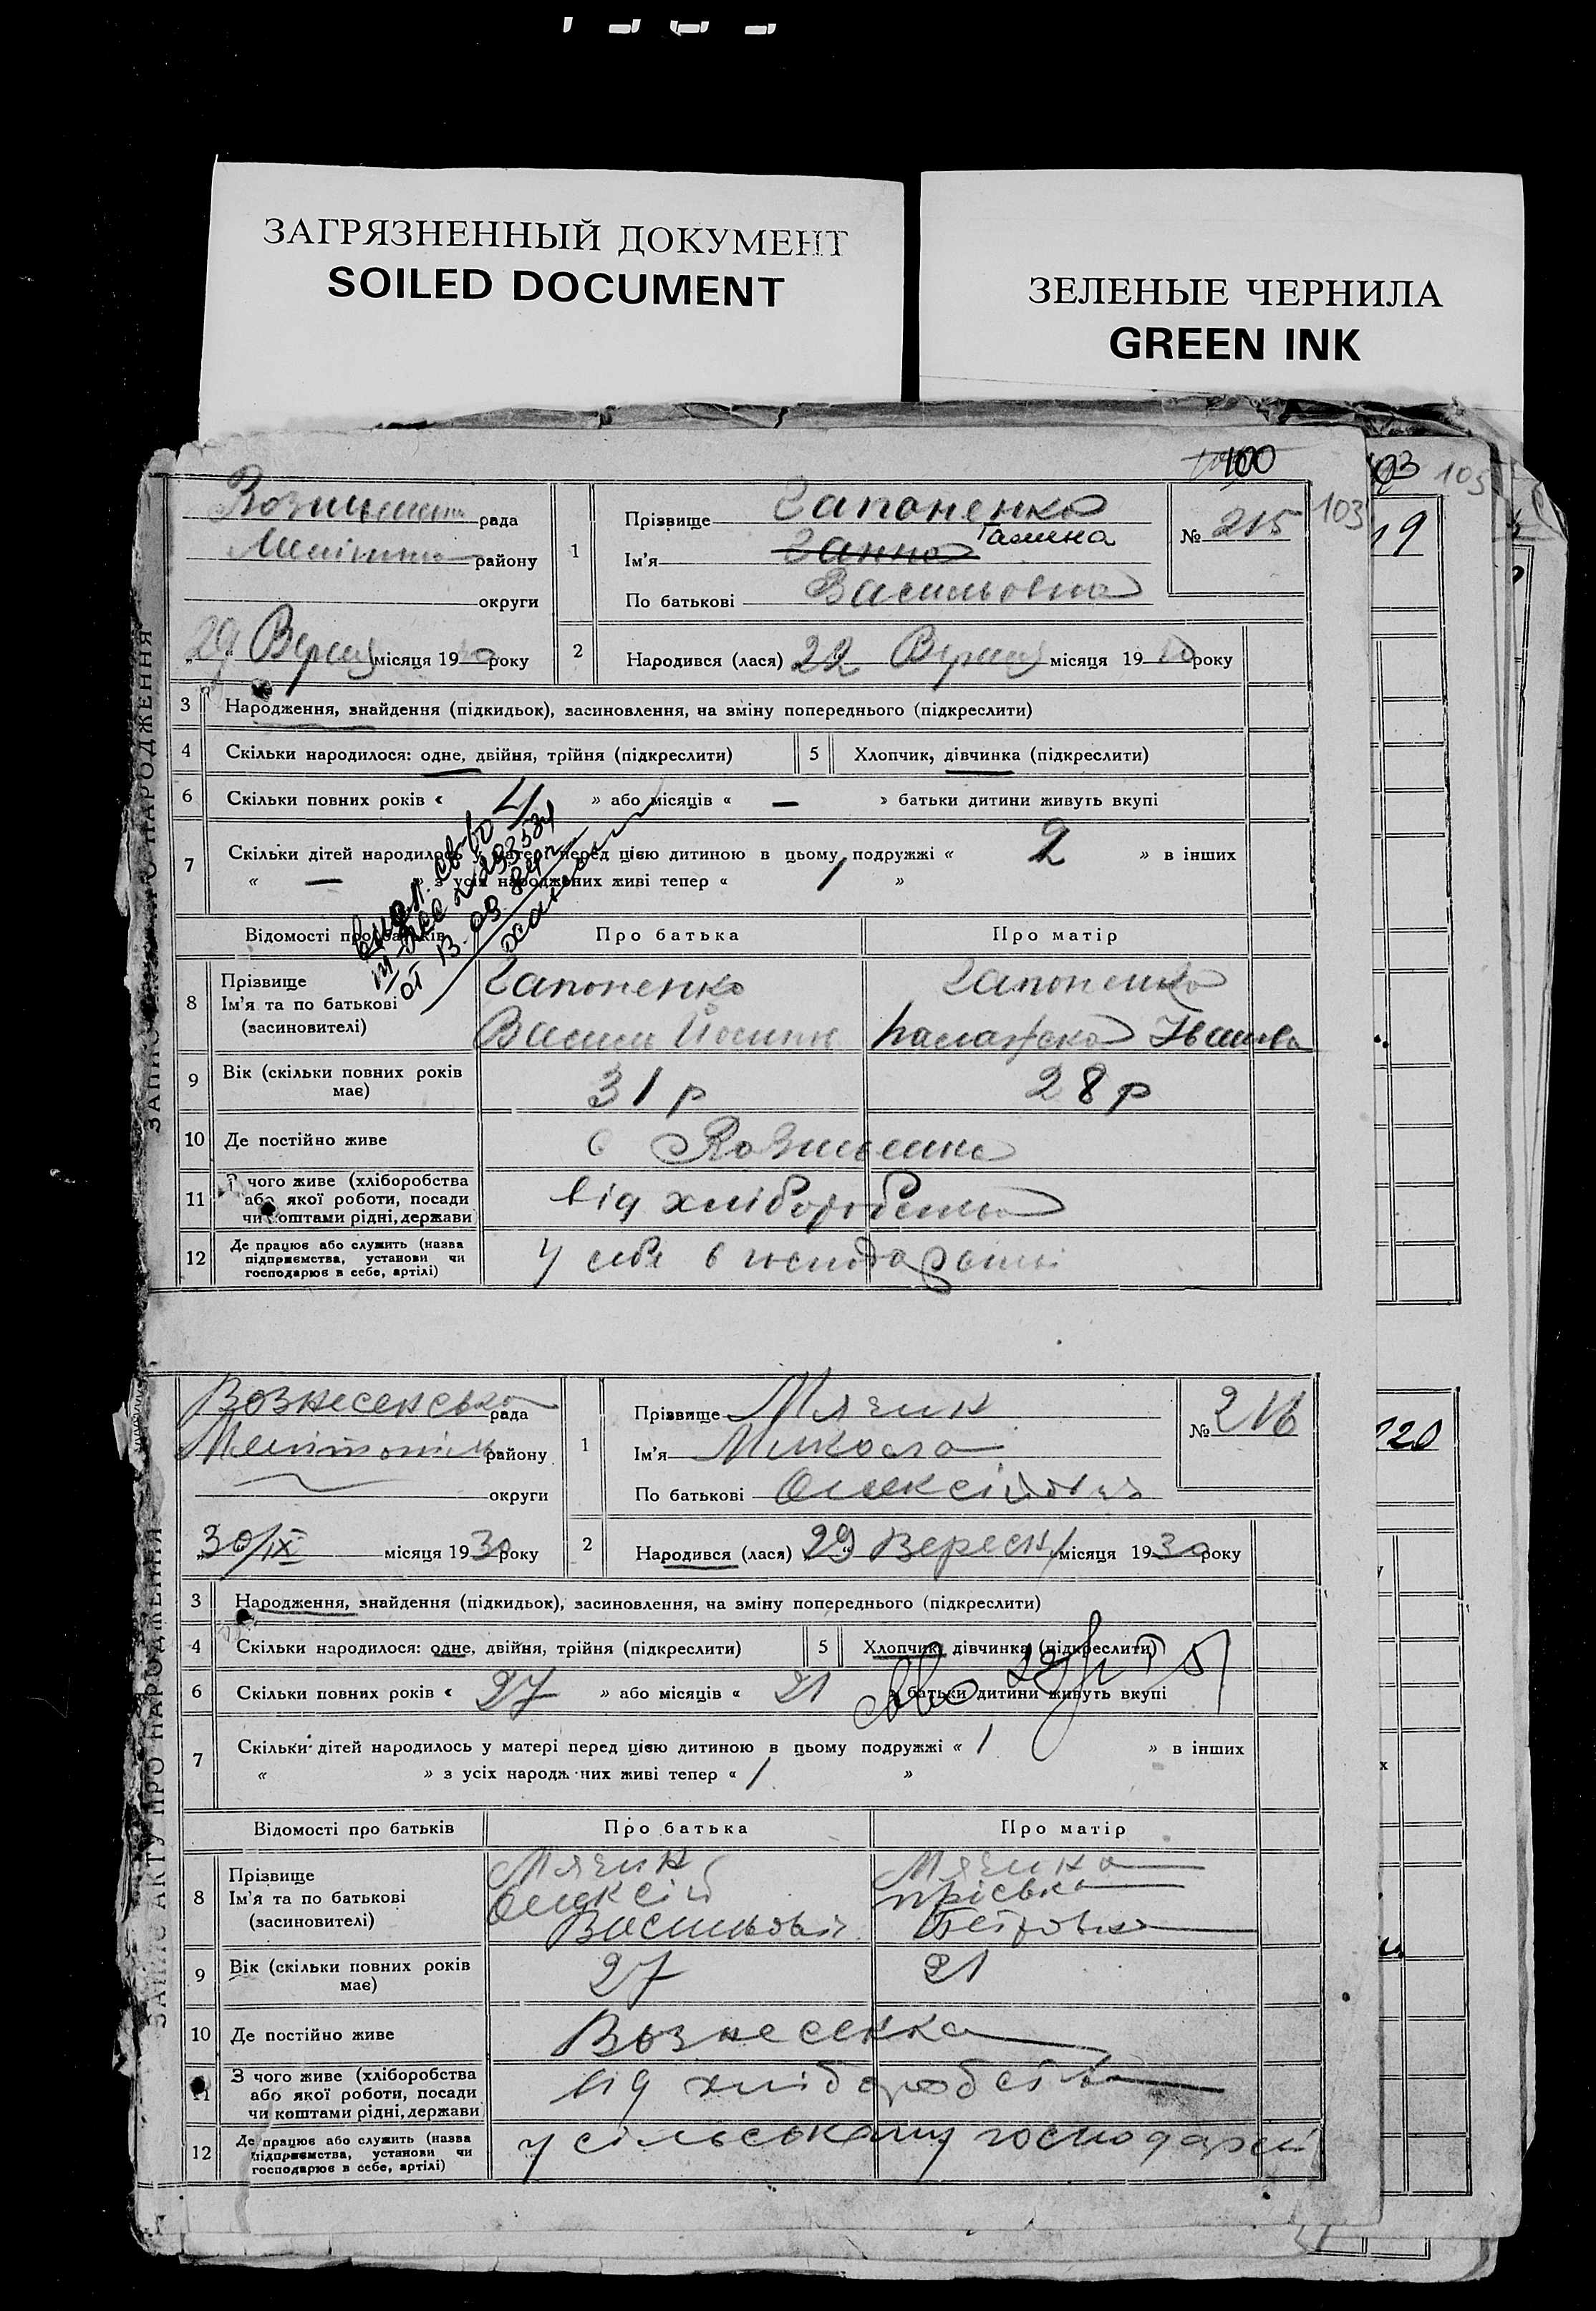 ЗАГРЯЗНЕННЫЙ ДОКУМЕНТ
SOILED DOCUMENT
ЗЕЛЕНЫЕ ЧЕРНИЛА
GREEN INK
100
103
03 105
19
120
ЗАПИС АКТУ ПРО НАРОДЖЕННЯ
рада
району
округи
29 Верес місяця 1930 року
1
Прізвище Гапоненко
Ім'я Ганна Галина
По батькові Васильовна
№ 215
2
Народився (лася) 22 Верес місяця 19 року
3 Народження, знайдення (підкидьок), засиновлення, на зміну попереднього (підкреслити)
4 Скільки народилося: одне, двійня, трійня (підкреслити) 5 Хлопчик, дівчинка (підкреслити)
6 Скільки повних років « 4 » або місяців « — » батьки дитини живуть вкупі
7 Скільки дітей народилось у матері перед цією дитиною в цьому подружжі « 2 » в інших
« — » з усіх народжених живі тепер « 1 »
от 13.03.84
Відомості про батьків Про батька Про матір
8 Прізвище
Ім'я та по батькові
(засиновителі)
Гапоненко Гапоненко
Васил Йосипов Палажка Іванівна
9 Вік (скільки повних років має) 31 р 28 р
10 Де постійно живе с Вознесенка
11 З чого живе (хліборобства або якої роботи, посади чи коштами рідні, держави від хліборобства
12 Де працює або служить (назва підприємства, установи чи господарює в себе, артілі) У себе в господарстві
ЗАПИС АКТУ ПРО НАРОДЖЕННЯ
Вознесенська рада
Мелітопільск району
округи
30/IX місяця 1930 року
1
Прізвище Мягик
Ім'я Микола
По батькові Олексійович
№ 216
2
Народився (лася) 29 Вересн місяця 1930 року
3 Народження, знайдення (підкидьок), засиновлення, на зміну попереднього (підкреслити)
4 Скільки народилося: одне, двійня, трійня (підкреслити) 5 Хлопчик, дівчинка (підкреслити)
6 Скільки повних років « 27 » або місяців « 21 » батьки дитини живуть вкупі
7 Скільки дітей народилось у матері перед цією дитиною в цьому подружжі « 1 » в інших
« » з усіх народжених живі тепер « 1 »
Відомості про батьків Про батька Про матір
8 Прізвище
Ім'я та по батькові
(засиновителі)
Мягик Мягика
Олексій Пріська
Васильович Петровна
9 Вік (скільки повних років має) 27 21
10 Де постійно живе Вознесенка
11 З чого живе (хліборобства або якої роботи, посади чи коштами рідні, держави від хліборобства
12 Де працює або служить (назва підприємства, установи чи господарює в себе, артілі) у сільському господарсті